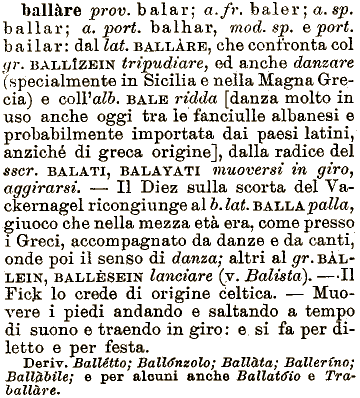 ballàre prov. balar; a. fr. baler; a. sp.
ballar; a. port. balhar, mod. sp. e port.
bailar: dal lat. BALLÀRE, che confronta col
gr. BALLÎZEIN tripudiare, ed anche danzare
(specialmente in Sicilia e nella Magna Gre-
cia) e coll'alb. BALE ridda [danza molto in
uso anche oggi tra le fanciulle albanesi e
probabilmente importata dai paesi latini,
anziché di greca origine], dalla radice del
sscr. BALATI, BALAYATI muoversi in giro,
aggirarsi. — Il Diez sulla scorta del Va-
ckernagel ricongiunge al b. lat. BALLA palla,
giuoco che nella mezza età era, come presso
i Greci, accompagnato da danze e da canti,
onde poi il senso di danza; altri al gr. BÀL-
LEIN, BALLÈSEIN lanciare (v. Balista). — Il
Fick lo crede di origine celtica. — Muo-
vere i piedi andando e saltando a tempo
di suono e traendo in giro: e si fa per di-
letto e per festa.
Deriv. Ballétto; Ballónzolo; Ballàta; Ballerino;
Ballàbile; e per alcuni anche Ballatóio e Tra-
ballàre.